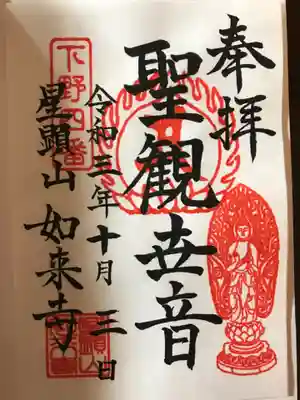 奉拝
聖觀世音
令和三年十月三日
下野四番
星顕山如来寺